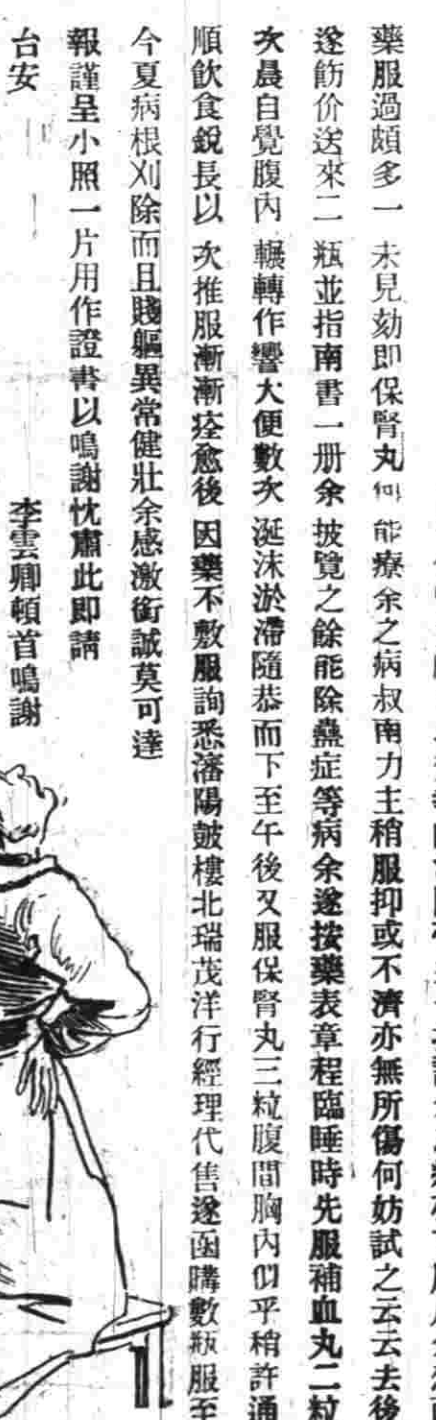 藥服過頗多一 未見効即保腎丸何能療余之病叔南力主稍服抑或不濟亦無所傷何妨試之云云去後
遂飭价送來二 瓶並指南書一册余披覽之餘能除蠱症等病余遂按藥表章程臨睡時先服補血丸二粒
次晨自覺腹內 輾轉作響大便數次涎沫淤滯隨恭而下至午後又服保腎丸三粒腹間胸內似乎稍許通
順飲食銳長以 次推服漸漸痊愈後因藥不敷服詢悉瀋陽皷樓北瑞茂洋行經理代售遂函購數瓶服至
今夏病根刈除而且賤軀異常健壯余感激銜誠莫可達
報謹呈小照一片用作證書以鳴謝忱肅此即請
台安 李雲卿頓首鳴謝